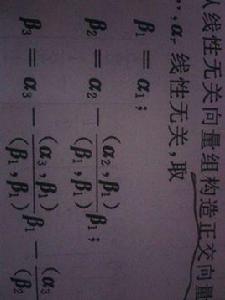 从线性无关向量组构造正交向量
,αr 线性无关,取
β1 = α1;
β2 = α2 − (α2, β1)/(β1, β1) β1;
β3 = α3 − (α3, β1)/(β1, β1) β1 − (α3/(β2